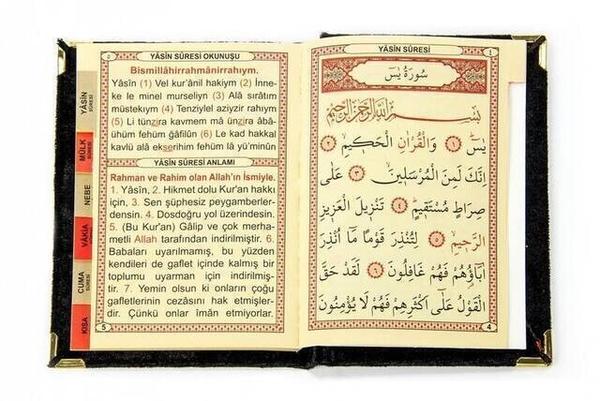 YÂSÎN SÛRESİ OKUNUŞU
Bismillâhirrahmânirrahıym.
Yâsîn (1) Vel kur'ânil hakiym (2) İnne-
ke le minel murseliyn (3) Alâ sırâtim
müstekıym (4) Tenziylel aziyzir rahıym
(5) Li tünzira kavmem mâ ünzira âbâ-
ühüm fehüm ğâfilûn (6) Le kad hakkal
kavlü alâ ekserihim fehüm lâ yü'minûn
YÂSİN SÛRESİ ANLAMI
Rahman ve Rahim olan Allah'ın İsmiyle.
1. Yâsîn, 2. Hikmet dolu Kur'an hakkı
için, 3. Sen şüphesiz peygamberler-
densin. 4. Dosdoğru yol üzerindesin.
5. (Bu Kur'an) Gâlip ve çok merha-
metli Allah tarafından indirilmiştir. 6.
Babaları uyarılmamış, bu yüzden
kendileri de gaflet içinde kalmış bir
toplumu uyarman için indirilmiş-
tir. 7. Yemin olsun ki onların çoğu
gafletlerinin cezasını hak etmişler-
dir. Çünkü onlar îman etmiyorlar.
5
YÂSİN SÛRESİ
MÜLK SÛRESİ
NEBE
VÂKIA
CUMA SÛRESİ
KISA
YÂSİN SÛRESİ
1
سُورَةُ يٰسٓ
بِسْمِ اللّٰهِ الرَّحْمٰنِ الرَّحِيمِ
يٰسٓ ﴿١﴾ وَالْقُرْاٰنِ الْحَكِيمِ ﴿٢﴾
اِنَّكَ لَمِنَ الْمُرْسَلِينَ ﴿٣﴾ عَلٰى
صِرَاطٍ مُسْتَقِيمٍ ﴿٤﴾ تَنْزِيلَ الْعَزِيزِ
الرَّحِيمِ ﴿٥﴾ لِتُنْذِرَ قَوْمًا مَٓا اُنْذِرَ
اٰبَٓاؤُ۬هُمْ فَهُمْ غَافِلُونَ ﴿٦﴾ لَقَدْ حَقَّ
الْقَوْلُ عَلٰٓى اَكْثَرِهِمْ فَهُمْ لَا يُؤْمِنُونَ
4